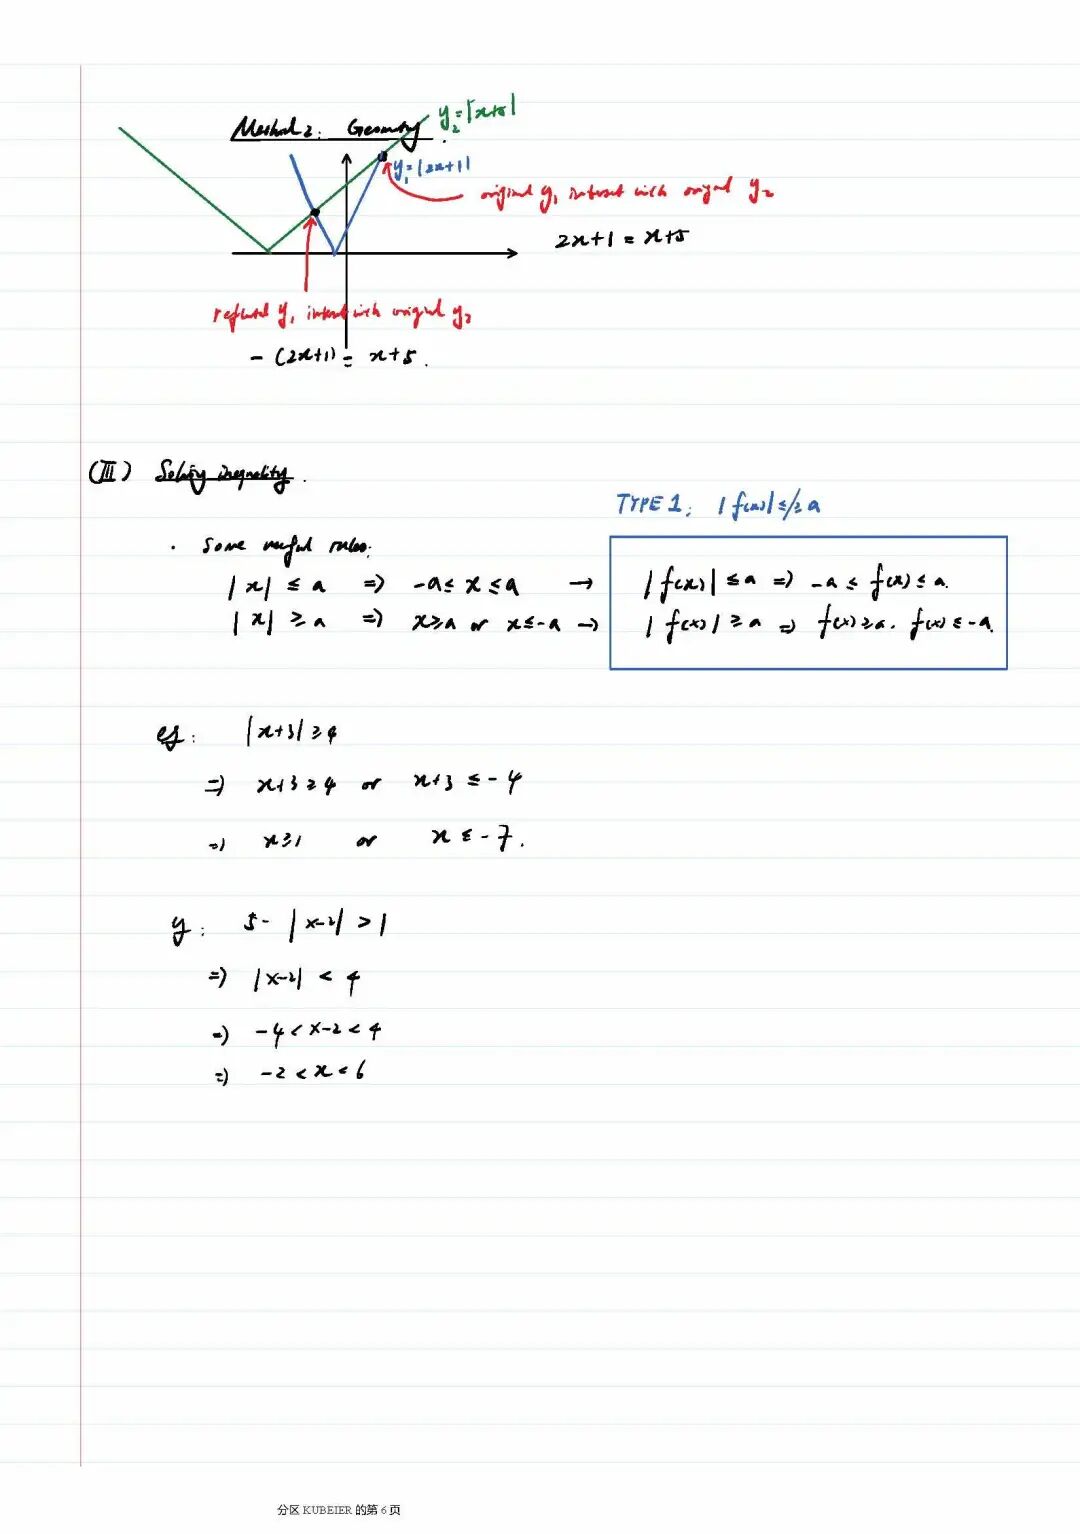 y₂=|x+5|
Method 2: Geometry.
y₁=|2x+1|
original y₁ intersect with original y₂
2x+1 = x+5
reflected y₁ intersect with original y₂
-(2x+1) = x+5.
(III) Solving inequality.
TYPE 1: |f(x)| ≤/≥ a
· Some useful rules:
|x| ≤ a => -a ≤ x ≤ a → |f(x)| ≤ a => -a ≤ f(x) ≤ a.
|x| ≥ a => x ≥ a or x ≤ -a → |f(x)| ≥ a => f(x) ≥ a. f(x) ≤ -a.
eg: |x+3| ≥ 4
=> x+3 ≥ 4 or x+3 ≤ -4
=> x ≥ 1 or x ≤ -7.
eg: 5-|x-2| > 1
=> |x-2| < 4
=> -4 < x-2 < 4
=> -2 < x < 6
分区 KUBEIER 的第 6 页